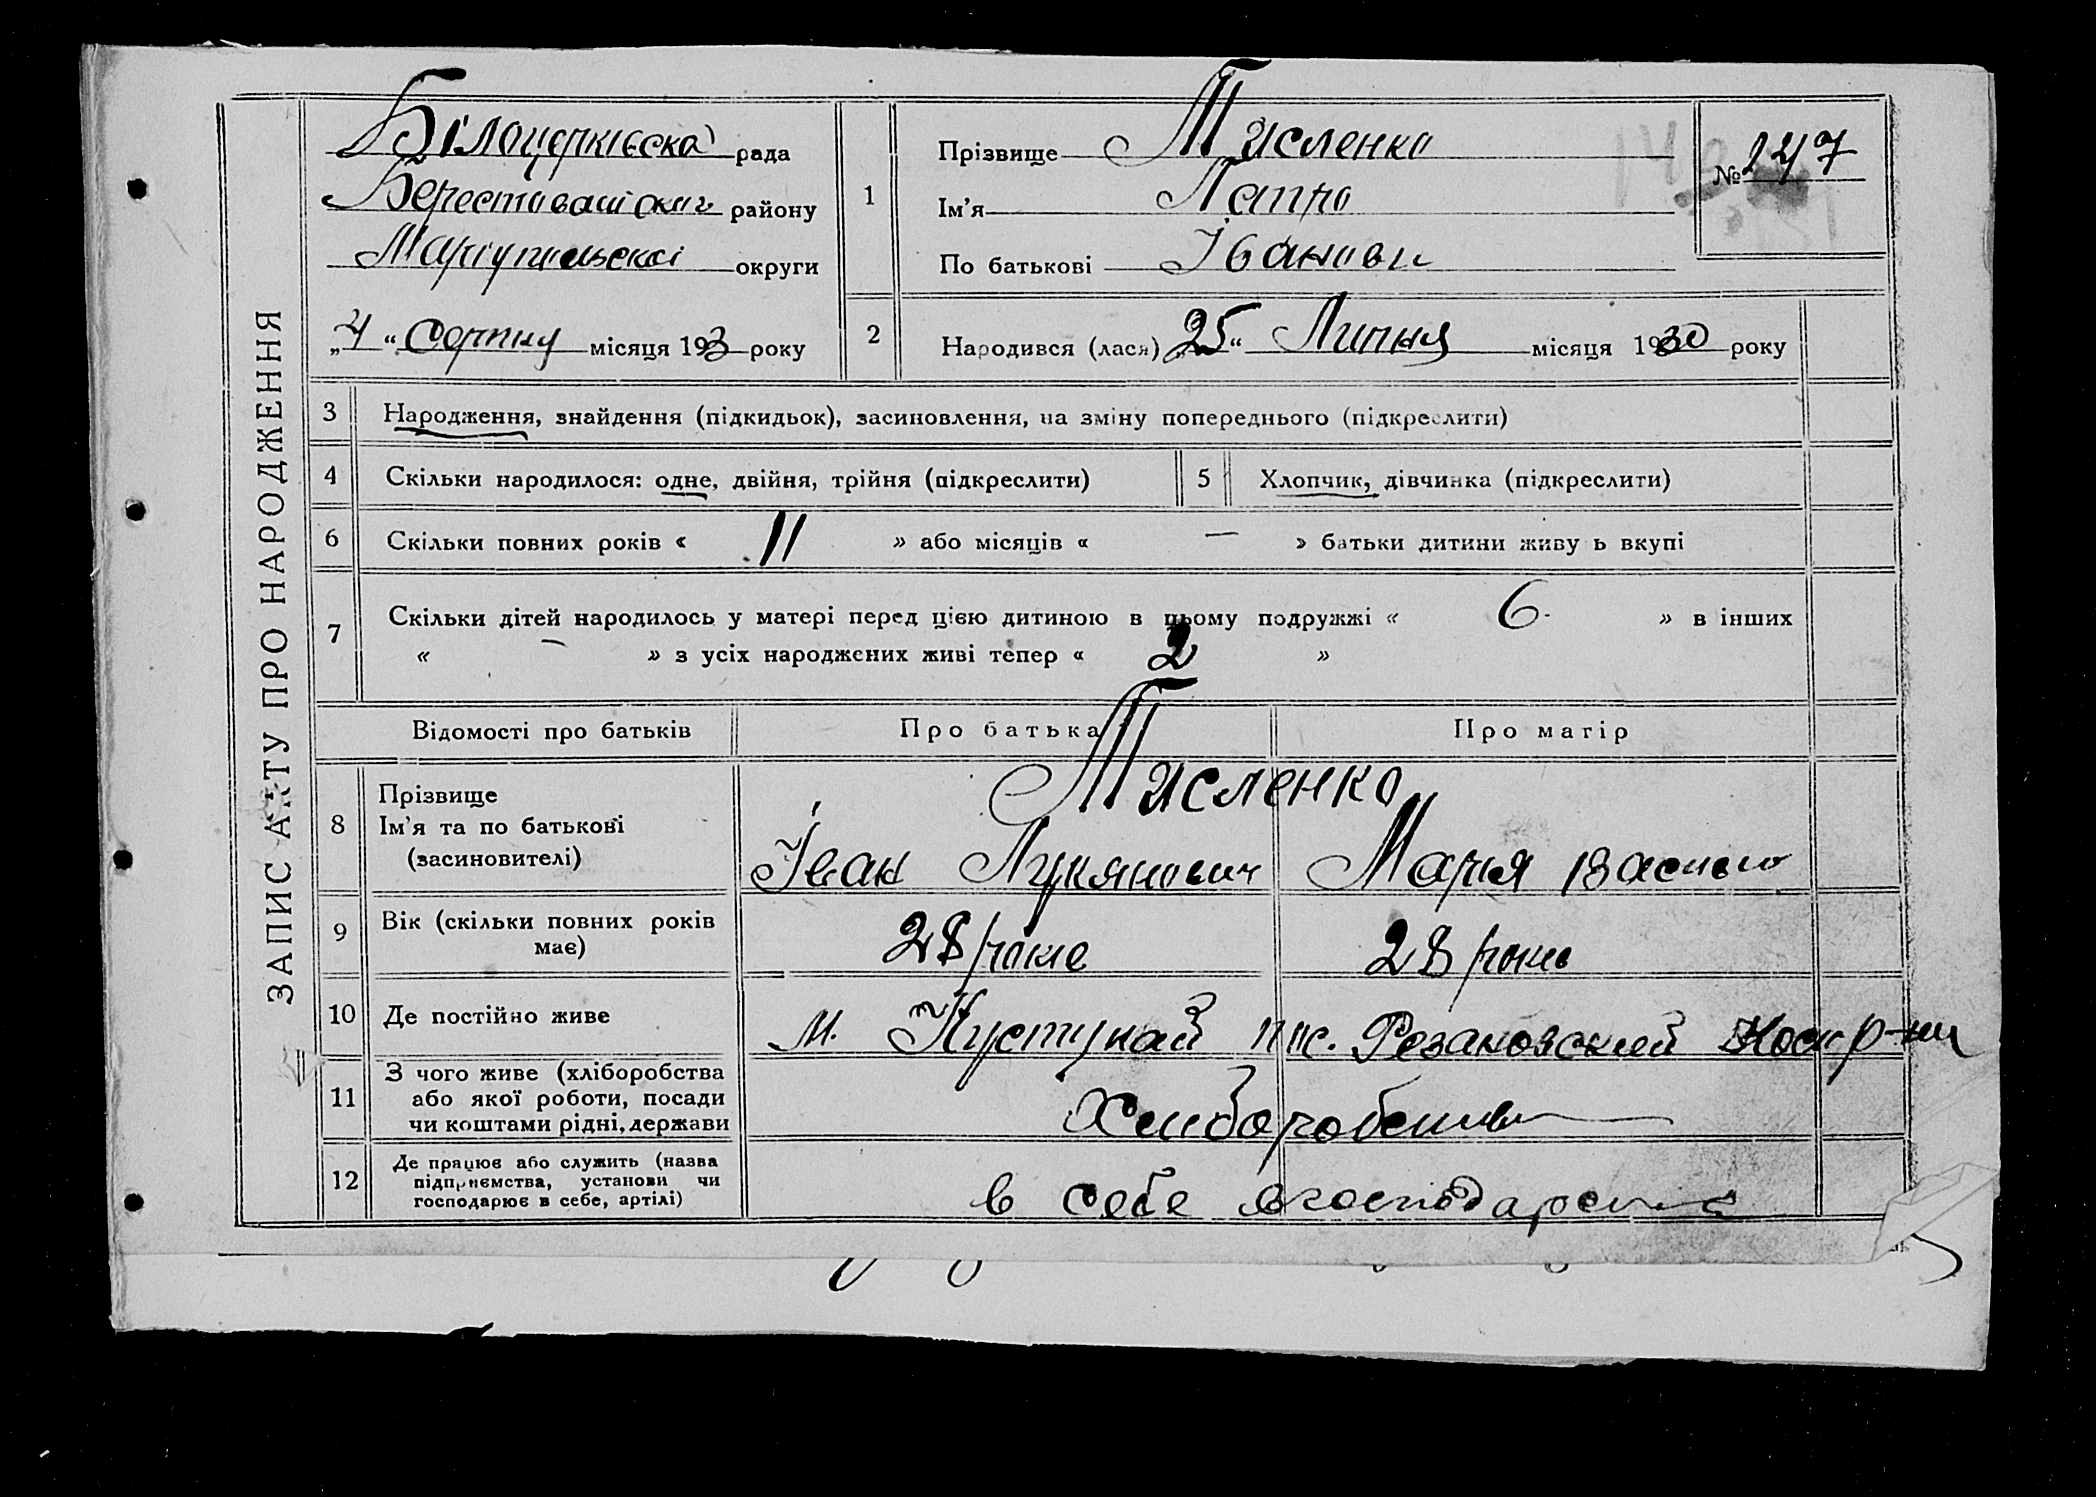 ЗАПИС АКТУ ПРО НАРОДЖЕННЯ
Білоцерківська рада
району
Маріупільської округи
„4“ серпня місяця 193 року
1
Прізвище Тисленко
Ім'я Петро
По батькові Іванови
№ 147
2
Народився (лася) „25“ Липня місяця 1930 року
3
Народження, знайдення (підкидьок), засиновлення, на зміну попереднього (підкреслити)
4
Скільки народилося: одне, двійня, трійня (підкреслити)
5
Хлопчик, дівчинка (підкреслити)
6
Скільки повних років « 11 » або місяців « — » батьки дитини живу ь вкупі
7
Скільки дітей народилось у матері перед цією дитиною в цьому подружжі « 6 » в інших
« — » з усіх народжених живі тепер « 2 »
Відомості про батьків
Про батька
Про матір
8
Прізвище
Ім'я та по батькові
(засиновителі)
Тисленко
Іван Лукянович
Марія
9
Вік (скільки повних років
має)
28 роки
28 роки
10
Де постійно живе
м.
11
З чого живе (хліборобства
або якої роботи, посади
чи коштами рідні, держави
Хлиборобства
12
Де працює або служить (назва
підприємства, установи чи
господарює в себе, артілі)
в себе